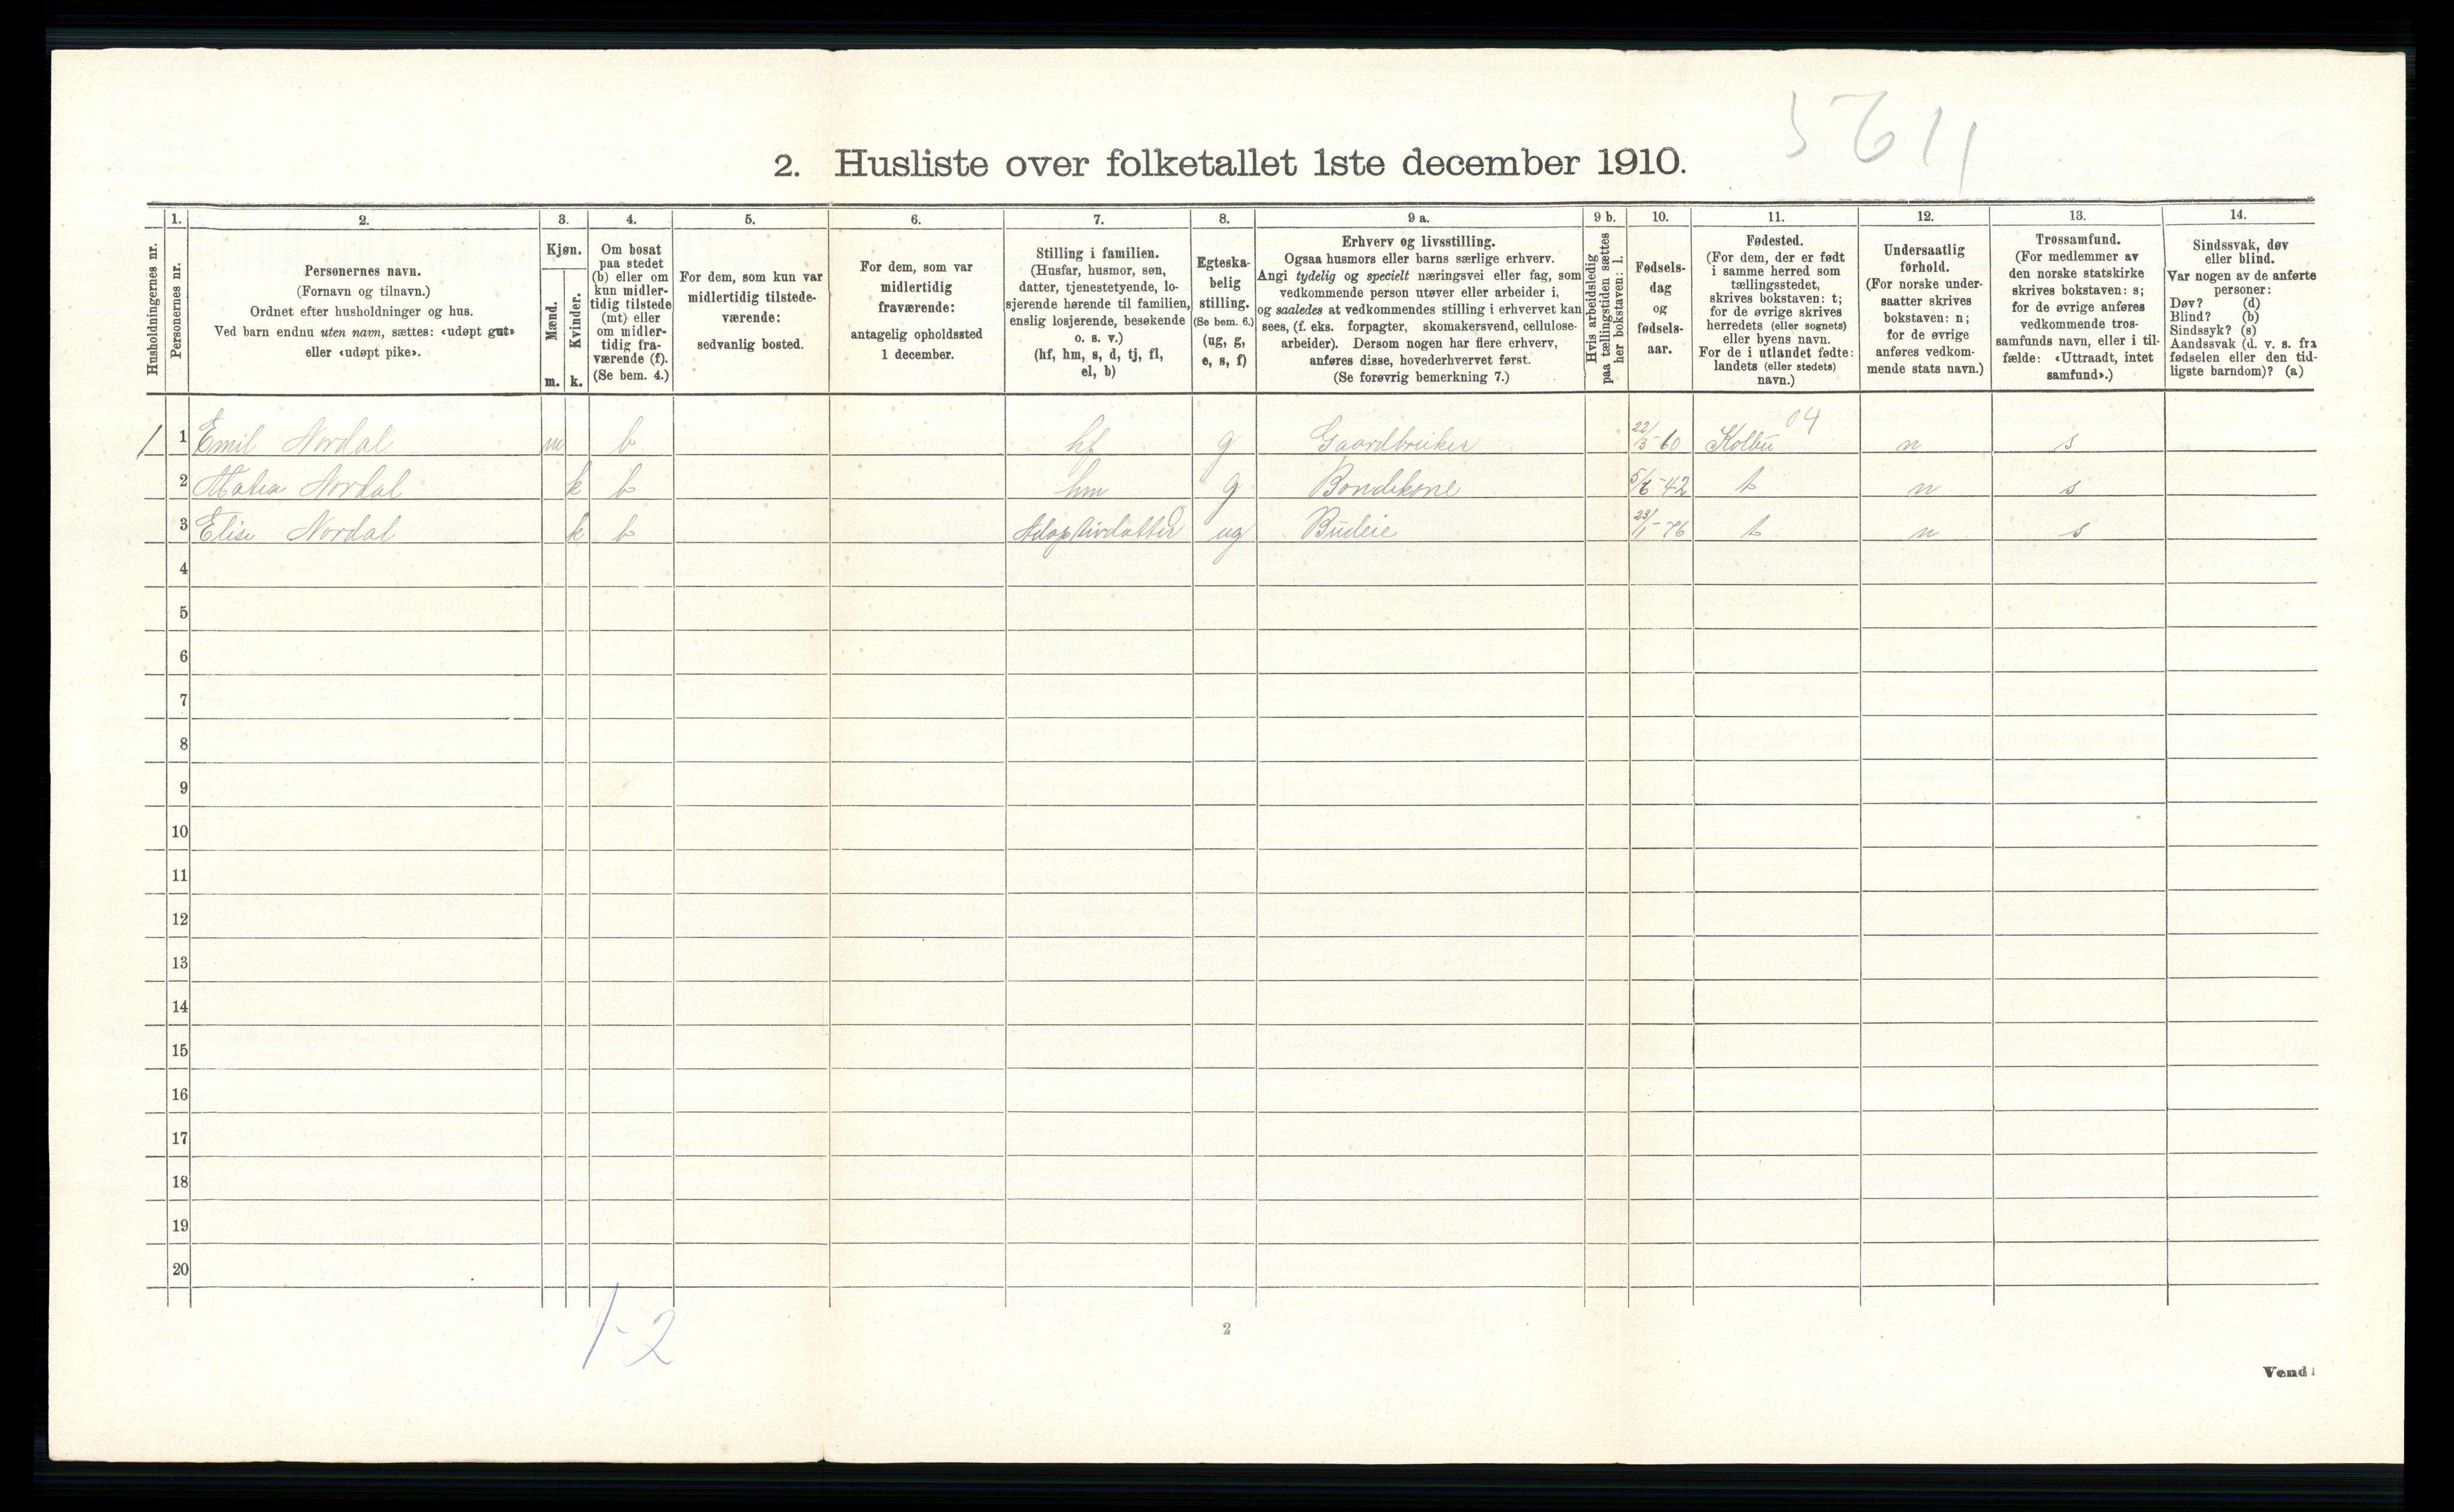 5611
2. Husliste over folketallet 1ste december 1910.
1. 2. 3. 4. 5. 6. 7. 8. 9 a. 9 b. 10. 11. 12. 13. 14.
Husholdningernes nr.
Personernes nr.
Personernes navn.
(Fornavn og tilnavn.)
Ordnet efter husholdninger og hus.
Ved barn endnu uten navn, sættes: «udøpt gut»
eller «udøpt pike».
Kjøn.
Mænd.
Kvinder.
m. k.
Om bosat
paa stedet
(b) eller om
kun midler-
tidig tilstede
(mt) eller
om midler-
tidig fra-
værende (f).
(Se bem. 4.)
For dem, som kun var
midlertidig tilstede-
værende:
sedvanlig bosted.
For dem, som var
midlertidig
fraværende:
antagelig opholdssted
1 december.
Stilling i familien.
(Husfar, husmor, søn,
datter, tjenestetyende, lo-
sjerende hørende til familien,
enslig losjerende, besøkende
o. s. v.)
(hf, hm, s, d, tj, fl,
el, b)
Egteska-
belig
stilling.
(Se bem. 6.)
(ug, g,
e, s, f)
Erhverv og livsstilling.
Ogsaa husmors eller barns særlige erhverv.
Angi tydelig og specielt næringsvei eller fag, som
vedkommende person utøver eller arbeider i,
og saaledes at vedkommendes stilling i erhvervet kan
sees, (f. eks. forpagter, skomakersvend, cellulose-
arbeider). Dersom nogen har flere erhverv,
anføres disse, hovederhvervet først.
(Se forøvrig bemerkning 7.)
Hvis arbeidsledig
paa tællingstiden sættes
her bokstaven: l.
Fødsels-
dag
og
fødsels-
aar.
Fødested.
(For dem, der er født
i samme herred som
tællingsstedet,
skrives bokstaven: t;
for de øvrige skrives
herredets (eller sognets)
eller byens navn.
For de i utlandet fødte:
landets (eller stedets)
navn.)
Undersaatlig
forhold.
(For norske under-
saatter skrives
bokstaven: n;
for de øvrige
anføres vedkom-
mende stats navn.)
Trossamfund.
(For medlemmer av
den norske statskirke
skrives bokstaven: s;
for de øvrige anføres
vedkommende tros-
samfunds navn, eller i til-
fælde: «Uttraadt, intet
samfund».)
Sindssvak, døv
eller blind.
Var nogen av de anførte
personer:
Døv? (d)
Blind? (b)
Sindssyk? (s)
Aandssvak (d. v. s. fra
fødselen eller den tid-
ligste barndom)? (a)
04
1 1 Emil Nordal m b hf g Gaardbruker 22/3-60 Kolbu n s
2 Matea Nordal k b hm g Bondekone 5/6-42 t n s
3 Elise Nordal k b Adoptivdatter ug Budeie 23/1-76 t n s
4
5
6
7
8
9
10
11
12
13
14
15
16
17
18
19
20
1-2
2
Vend!